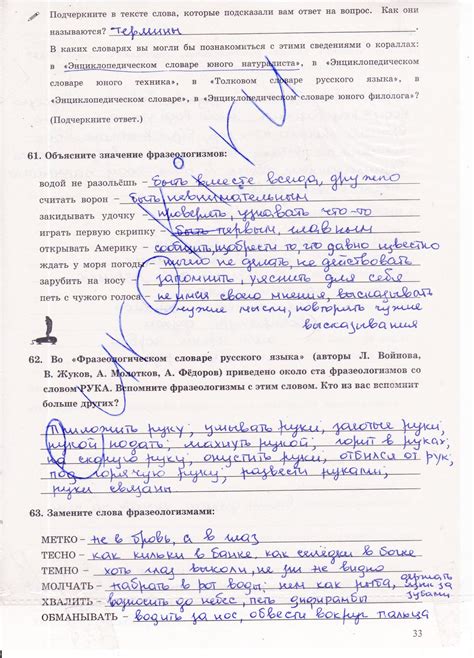 Подчеркните в тексте слова, которые подсказали вам ответ на вопрос. Как они
называются? термины
В каких словарях вы могли бы познакомиться с этими сведениями о кораллах:
в «Энциклопедическом словаре юного натуралиста», в «Энциклопедическом
словаре юного техника», в «Толковом словаре русского языка», в
«Энциклопедическом словаре», в «Энциклопедическом словаре юного филолога»?
(Подчеркните ответ.)
61. Объясните значение фразеологизмов:
водой не разольёшь – быть вместе всегда, дружно
считать ворон – быть невнимательным
закидывать удочку – проверять, узнавать что-то
играть первую скрипку – быть первым, главным
открывать Америку – сообщить, изобрести то, что давно известно
ждать у моря погоды – ничего не делать, не действовать
зарубить на носу – запомнить, уяснить для себя
петь с чужого голоса – не имея своего мнения, высказывать
чужие мысли, повторять чужие
высказывания
62. Во «Фразеологическом словаре русского языка» (авторы Л. Войнова,
В. Жуков, А. Молотков, А. Фёдоров) приведено около ста фразеологизмов со
словом РУКА. Вспомните фразеологизмы с этим словом. Кто из вас вспомнит
больше других?
Приложить руку; умывать руки, загребые руки;
рукой подать; махнуть рукой; горит в руках;
на скорую руку; опустить руки; отбился от рук;
под горячую руку; развести руками;
руки связаны
63. Замените слова фразеологизмами:
МЕТКО – не в бровь, а в глаз
ТЕСНО – как кильки в банке, как селёдки в бочке
ТЕМНО – хоть глаз выколи, не зги не видно
МОЛЧАТЬ – набрать в рот воды; нем как рыба, держать язык за зубами
ХВАЛИТЬ – возносить до небес, петь дифирамбы
ОБМАНЫВАТЬ – водить за нос, обвести вокруг пальца
33